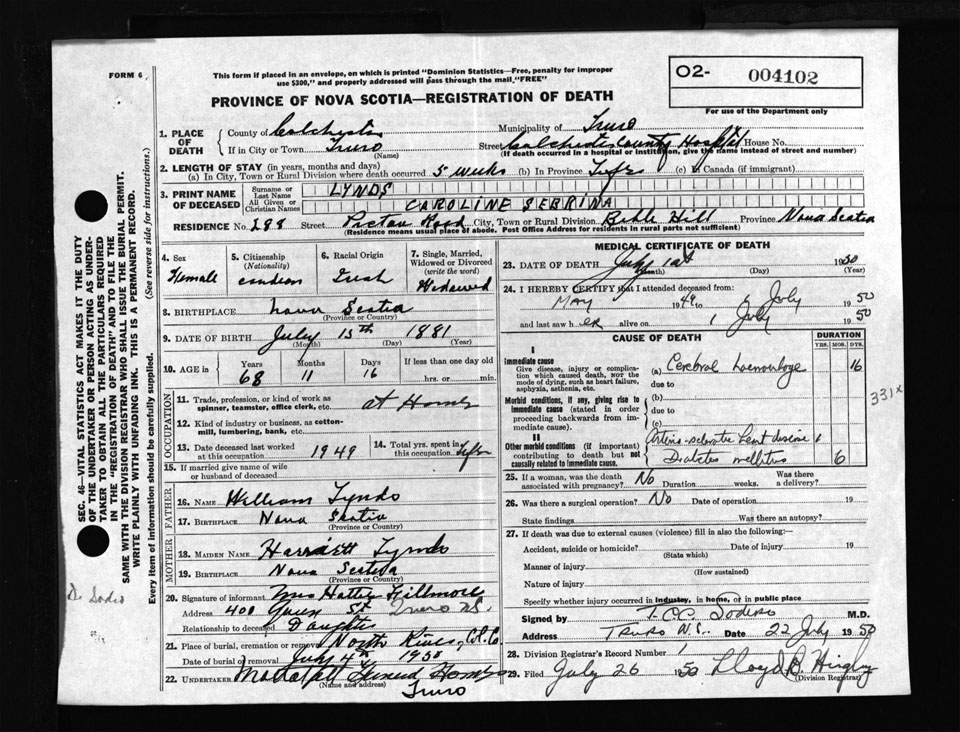 FORM 6
This form if placed in an envelope, on which is printed "Dominion Statistics—Free, penalty for improper
use $300," and properly addressed will pass through the mail, "FREE"
O2- 004102
For use of the Department only
PROVINCE OF NOVA SCOTIA—REGISTRATION OF DEATH
1. PLACE OF DEATH
County of Colchester Municipality of Truro
If in City or Town Truro (Name) Street Colchester County Hospital House No.
(If death occurred in a hospital or institution, give the name instead of street and number)
2. LENGTH OF STAY (in years, months and days)
(a) In City, Town or Rural Division where death occurred 5 weeks (b) In Province Life (c) In Canada (if immigrant)
3. PRINT NAME OF DECEASED
Surname or Last Name LYNDS
All Given or Christian Names CAROLINE SEBRINA
RESIDENCE No. 288 Street Pictou Road City, Town or Rural Division Bible Hill Province Nova Scotia
(Residence means usual place of abode. Post Office Address for residents in rural parts not sufficient)
4. Sex Female
5. Citizenship (Nationality)
6. Racial Origin Irish
7. Single, Married, Widowed or Divorced (write the word) Widowed
8. BIRTHPLACE Nova Scotia
(Province or Country)
9. DATE OF BIRTH July 15th 1881
(Month) (Day) (Year)
10. AGE in Years 68 Months 11 Days 16 If less than one day old hrs. or min.
OCCUPATION
11. Trade, profession or kind of work as spinner, teamster, office clerk, etc. at Home
12. Kind of industry or business, as cotton-mill, lumbering, bank, etc.
13. Date deceased last worked at this occupation 1949
14. Total yrs. spent in this occupation Life
15. If married give name of wife or husband of deceased
FATHER
16. NAME William Lynds
17. BIRTHPLACE Nova Scotia
(Province or Country)
MOTHER
18. MAIDEN NAME Harriett Lynds
19. BIRTHPLACE Nova Scotia
(Province or Country)
20. Signature of informant Mrs Hattie Fillmore
Address 400 Queen St Truro N.S.
Relationship to deceased Daughter
21. Place of burial, cremation or removal North River, Col. Co
Date of burial or removal July 4th 1950
22. UNDERTAKER Funeral Home
(Name and address)
Truro
MEDICAL CERTIFICATE OF DEATH
23. DATE OF DEATH July 1st 1950
(Month) (Day) (Year)
24. I HEREBY CERTIFY that I attended deceased from:
MAY 1949 to July 1950
and last saw her alive on 1 July 1950
CAUSE OF DEATH
DURATION
YRS. MOS. DYS.
I
Immediate cause
Give disease, injury or complication which caused death, NOT the mode of dying, such as heart failure, asphyxia, asthenia, etc.
(a) Cerebral haemorrhage 16
due to
Morbid conditions, if any, giving rise to immediate cause (stated in order proceeding backwards from immediate cause).
(b)
due to
(c)
II
Other morbid conditions (if important) contributing to death but not causally related to immediate cause.
Arterio-sclerotic heart disease 1
Diabetes mellitus 6
331x
25. If a woman, was the death associated with pregnancy? No Duration weeks. Was there a delivery?
26. Was there a surgical operation? No Date of operation 19
State findings Was there an autopsy?
27. If death was due to external causes (violence) fill in also the following:—
Accident, suicide or homicide? Date of injury 19
(State which)
Manner of injury
(How sustained)
Nature of injury
Specify whether injury occurred in industry, in home, or in public place
Signed by M.D.
Address TRURO N.S. Date 22 July 1950
28. Division Registrar's Record Number
29. Filed July 26 1950 Lloyd B.
(Division Registrar)
SEC. 46—VITAL STATISTICS ACT MAKES IT THE DUTY
OF THE UNDERTAKER OR PERSON ACTING AS UNDER-
TAKER TO OBTAIN ALL THE PARTICULARS REQUIRED
IN THE "REGISTRATION OF DEATH" AND TO FILE THE
SAME WITH THE DIVISION REGISTRAR WHO SHALL ISSUE THE BURIAL PERMIT.
WRITE PLAINLY WITH UNFADING INK. THIS IS A PERMANENT RECORD.
Every item of information should be carefully supplied. (See reverse side for instructions.)